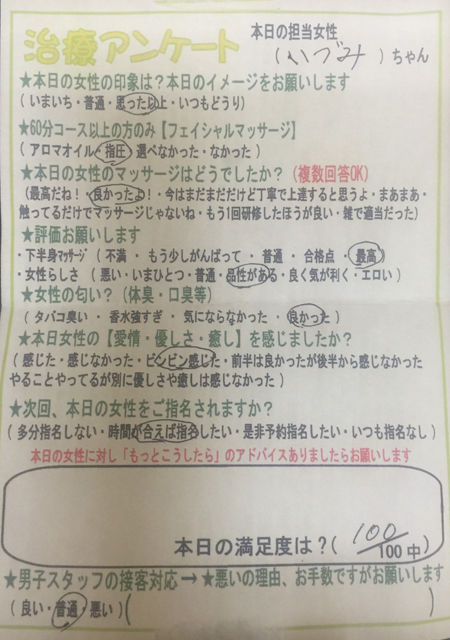 治療アンケート
本日の担当女性
( いづみ )ちゃん
★本日の女性の印象は?本日のイメージをお願いします
(いまいち・普通・思った以上・いつもどうり)
★60分コース以上の方のみ【フェイシャルマッサージ】
(アロマオイル・指圧 選べなかった・なかった)
★本日の女性のマッサージはどうでしたか?(複数回答OK)
(最高だね!・良かったよ!・今はまだまだだけど丁寧で上達すると思うよ・まあまあ・
触ってるだけでマッサージじゃないね・もう1回研修したほうが良い・雑で適当だった)
★評価お願いします
・下半身マッサージ ( 不満 ・ もう少しがんばって ・ 普通 ・ 合格点 ・ 最高 )
・女性らしさ ( 悪い・いまひとつ・普通・品性がある・良く気が利く・エロい )
★女性の匂い?(体臭・口臭等)
( タバコ臭い ・ 香水強すぎ ・ 気にならなかった ・ 良かった )
★本日女性の【愛情・優しさ・癒し】を感じましたか?
(感じた・感じなかった・ビンビン感じた・前半は良かったが後半から感じなかった
やることやってるが別に優しさや癒しは感じなかった )
★次回、本日の女性をご指名されますか?
( 多分指名しない・時間が合えば指名したい・是非予約指名したい・いつも指名なし )
本日の女性に対し「もっとこうしたら」のアドバイスありましたらお願いします
本日の満足度は?( 100/100中)
★男子スタッフの接客対応 → ★悪いの理由、お手数ですがお願いします
( 良い・普通・悪い )( )